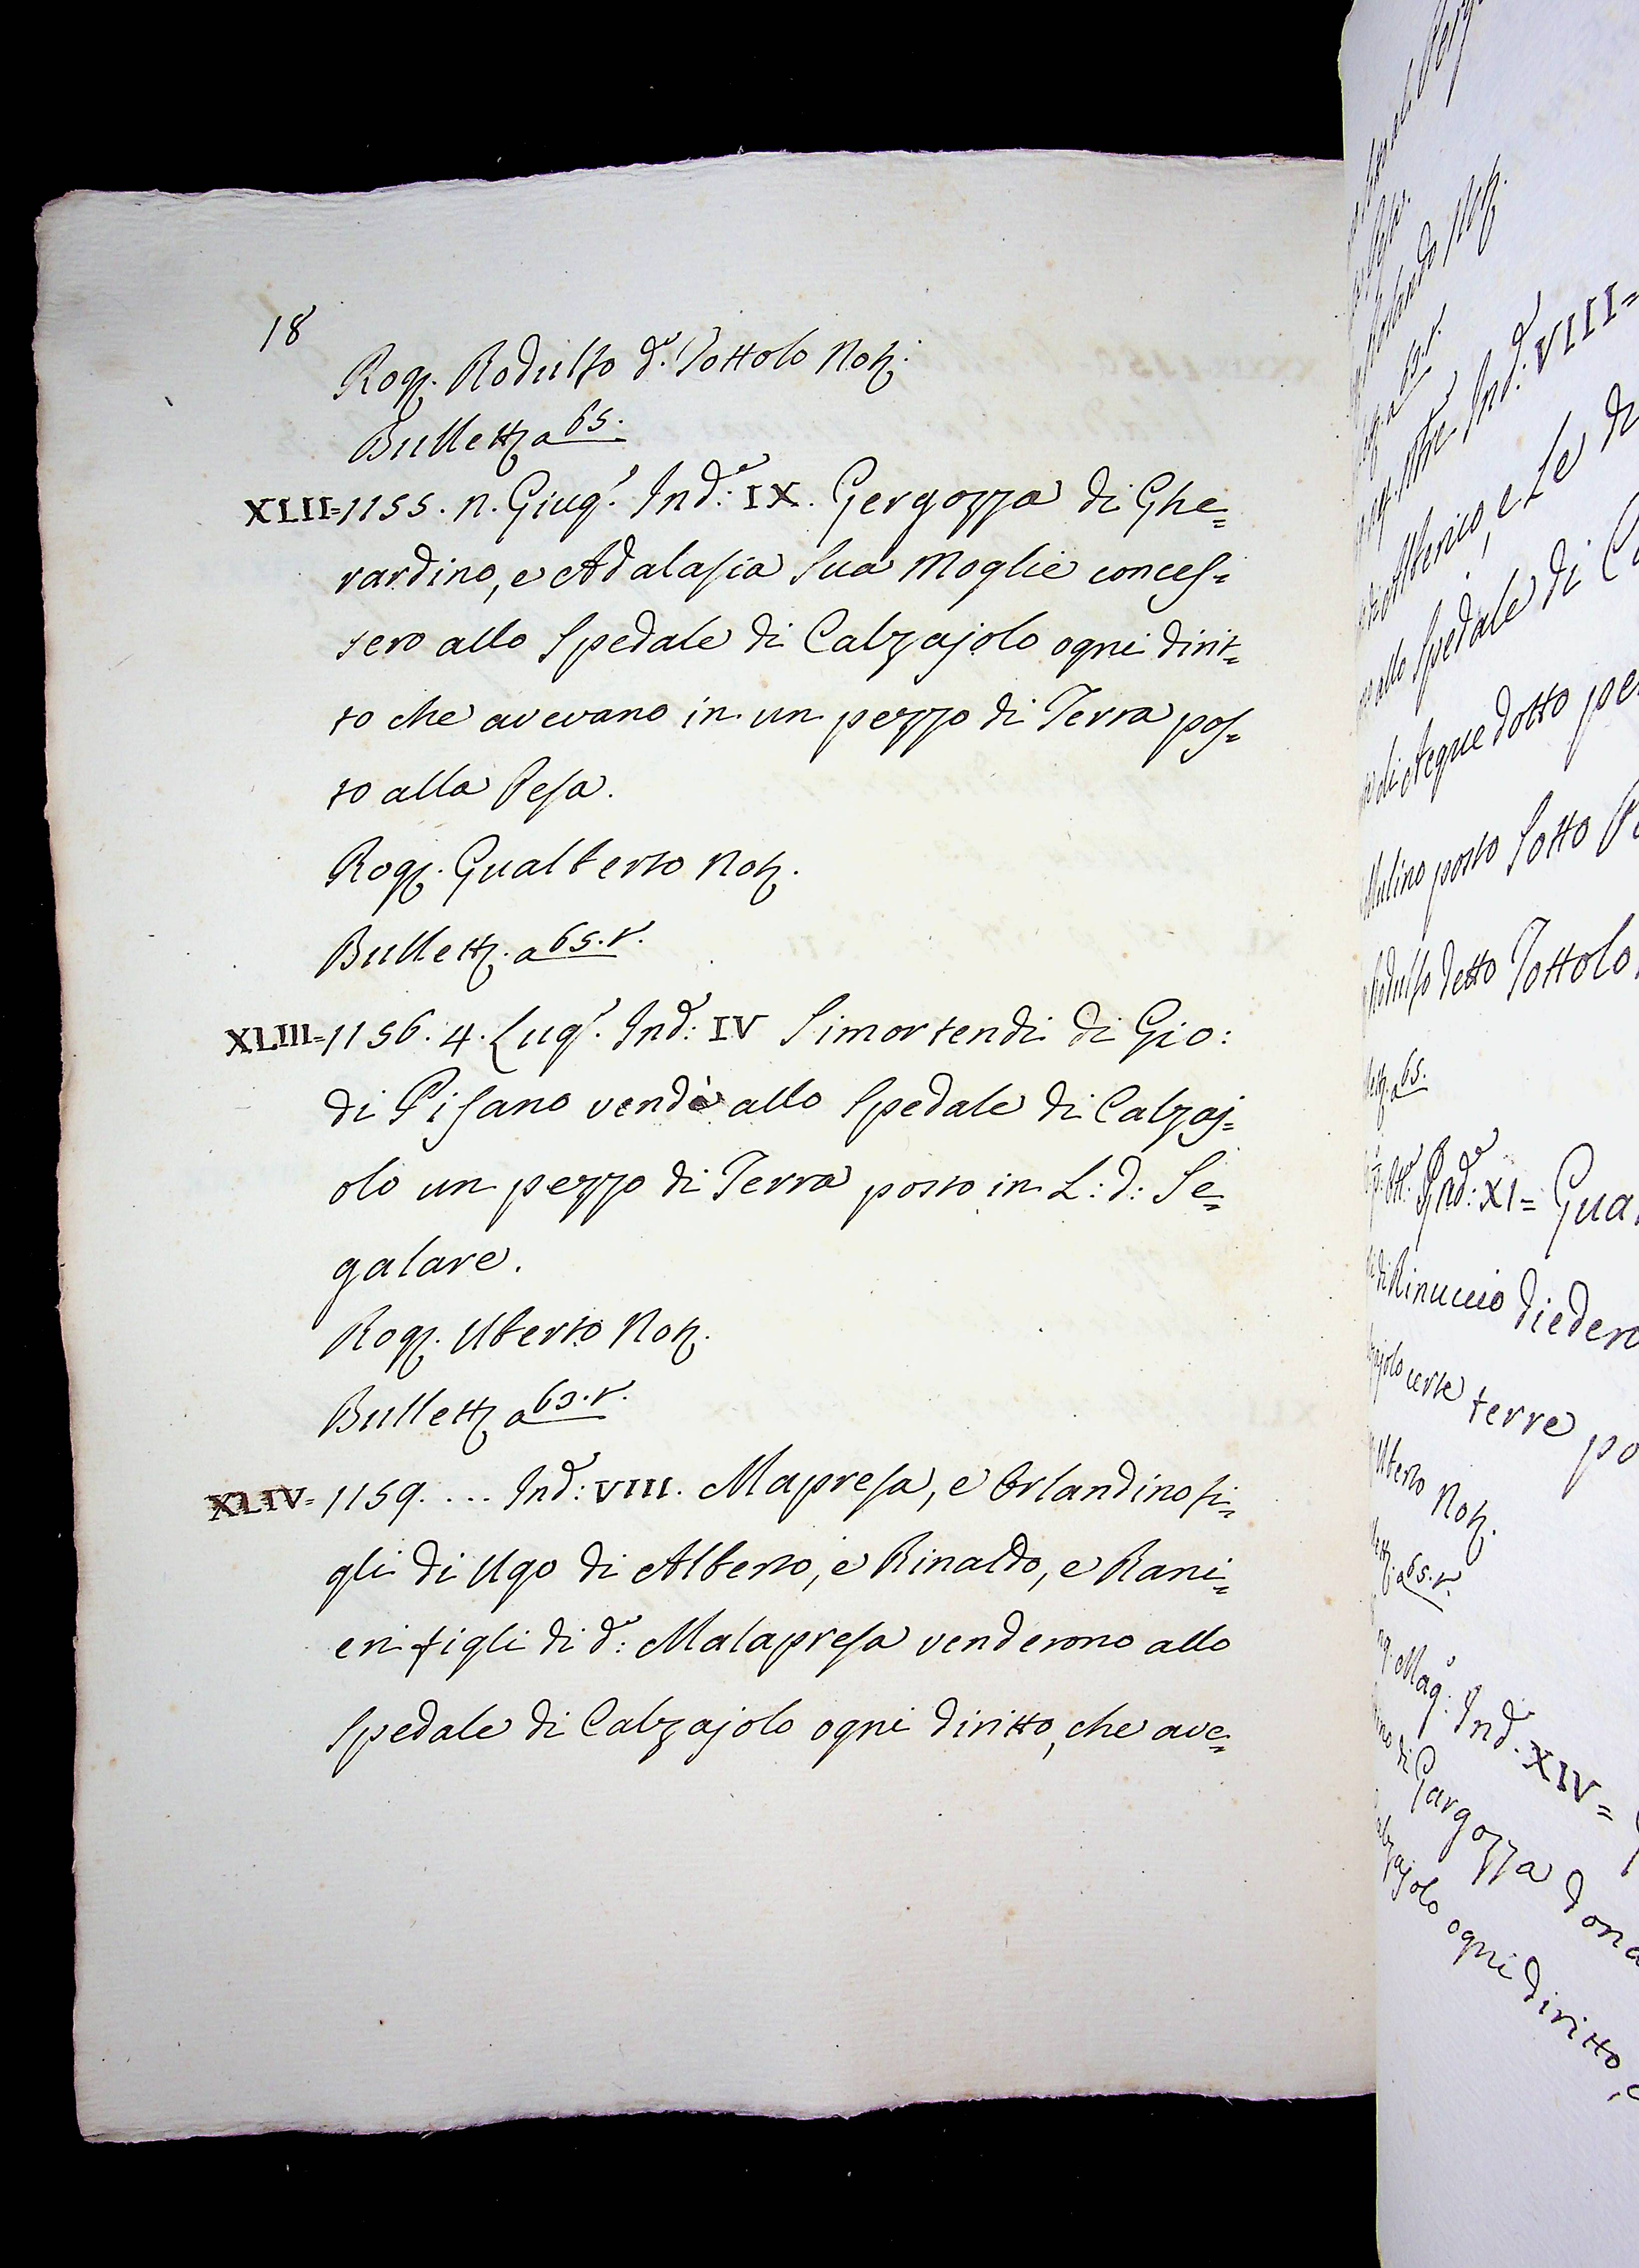 18
Rog. Rodulfo d.º Tottolo Notº.
Bullett. a 65.
XLII=1155. n. Giug.º Ind.e: IX. Gergozza di Ghe=
rardino, e Adalasia Sua Moglie conces=
sero allo Spedale di Calzajolo ogni dirit=
to che avevano in un pezzo di Terra pos=
to alla Pesa.
Rog. Gualberto Not.
Bullett. a 65.r.
XLIII=1156. 4. Lug.º Ind.e: IV Simortendi di Gio:
di Pisano vendè allo Spedale di Calzaj=
olo un pezzo di Terra posto in L: d: Se=
galare.
Rog. Uberto Not.
Bullett. a 63.r.
XLIV=1159. ... Ind.e: VIII. Mapresa, e Orlandino fi=
gli di Ugo di Alberto, e Rinaldo, e Rani=
eri figli di d.a: Malapresa venderono allo
Spedale di Calzajolo ogni diritto, che ave=
Ind.e: VIII=
65.r.
Alberico, e Le
allo Spedale di
Acque dotto
Mulino posto Sotto
Rodulfo detto Tottolo
a 65.
Ind.e: XI=
di Rinuccio diedero
certe terre
Uberto Not.
a 65.r.
Mag.º: Ind.e XIV=
di Gargozza
ogni diritto,